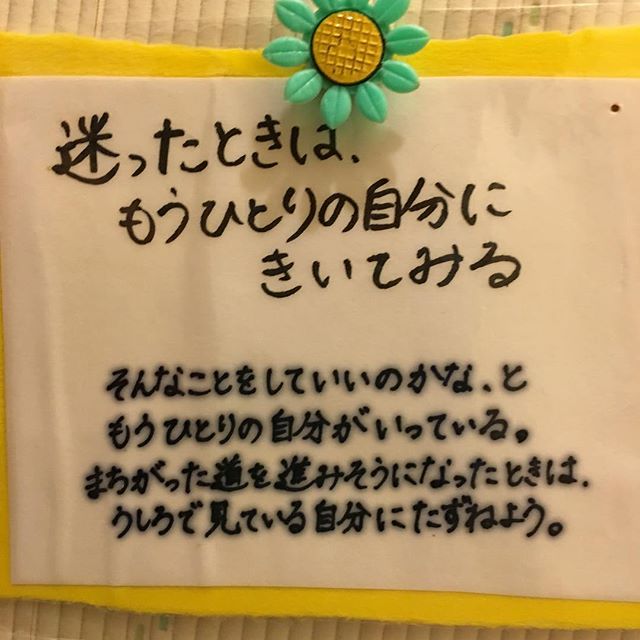 迷ったときは、
もうひとりの自分に
きいてみる
そんなことをしていいのかな、と
もうひとりの自分がいっている。
まちがった道を進みそうになったときは、
うしろで見ている自分にたずねよう。